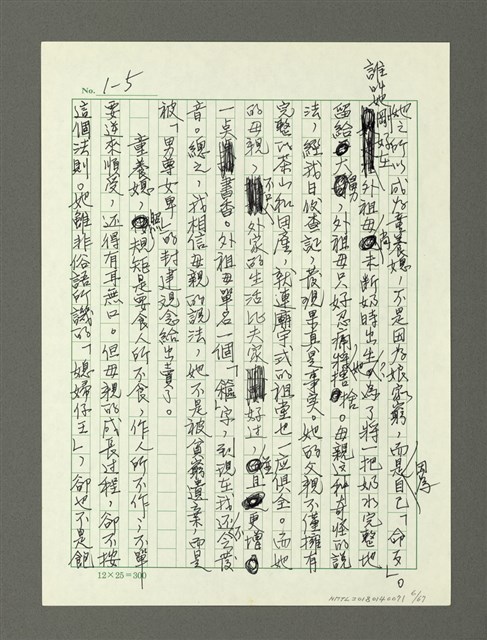 No. 1-5
她之所以成為童養媳，不是因為娘家窮，而是自己「命歹」。
誰叫她剛好在外祖母尚未斷奶時出生，為了將一把奶水完整地
留給大舅，外祖母只好忍痛將她捨。母親這種奇怪的說
法，經我日後查証，發現果真是事實。她的父親不僅擁有
完整的茶山和田產，就連廟宇式的祖堂也一應俱全。而她
的母親，不只外家的生活比夫家好過，且更增
一點書香。外祖母單名一個「」字，到現在我還會發
音。總之，我相信母親的說法，她不是被貧窮遺棄，而是
被「男尊女卑」的封建觀念給出賣了。
童養媳，照規矩是要食人所不食，作人所不作；不單
要逆來順受，還得有耳無口。但母親的成長过程，卻不按
這個法則。她雖非俗語所譏的「媳婦仔王」，卻也不是飽
12×25=300
NMTL20180140091
6/67